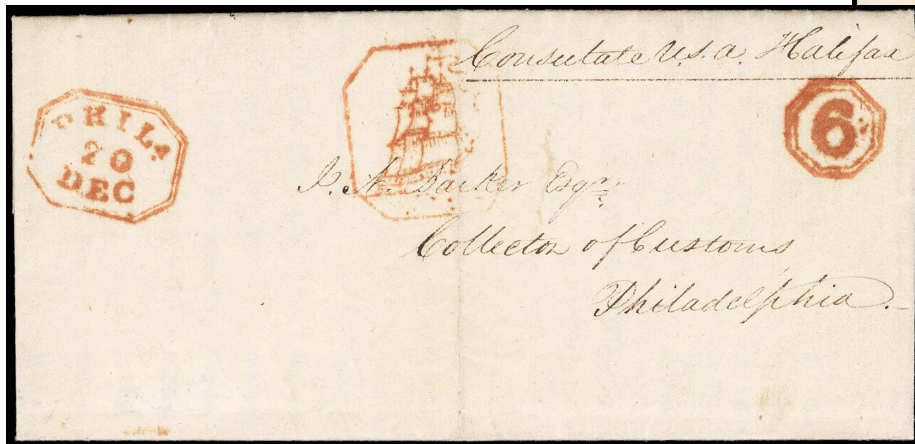 Consulate U.S.a. Halifax
PHILA
20
DEC
6
J. N. Barker Esqr.
Collector of Customs
Philadelphia.